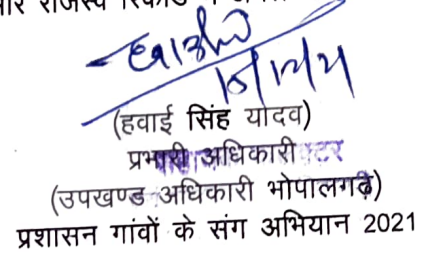 राजस्व रिकॉर्ड
(हवाई सिंह यादव)
प्रभारी अधिकारी
(उपखण्ड अधिकारी भोपालगढ़)
प्रशासन गांवों के संग अभियान 2021